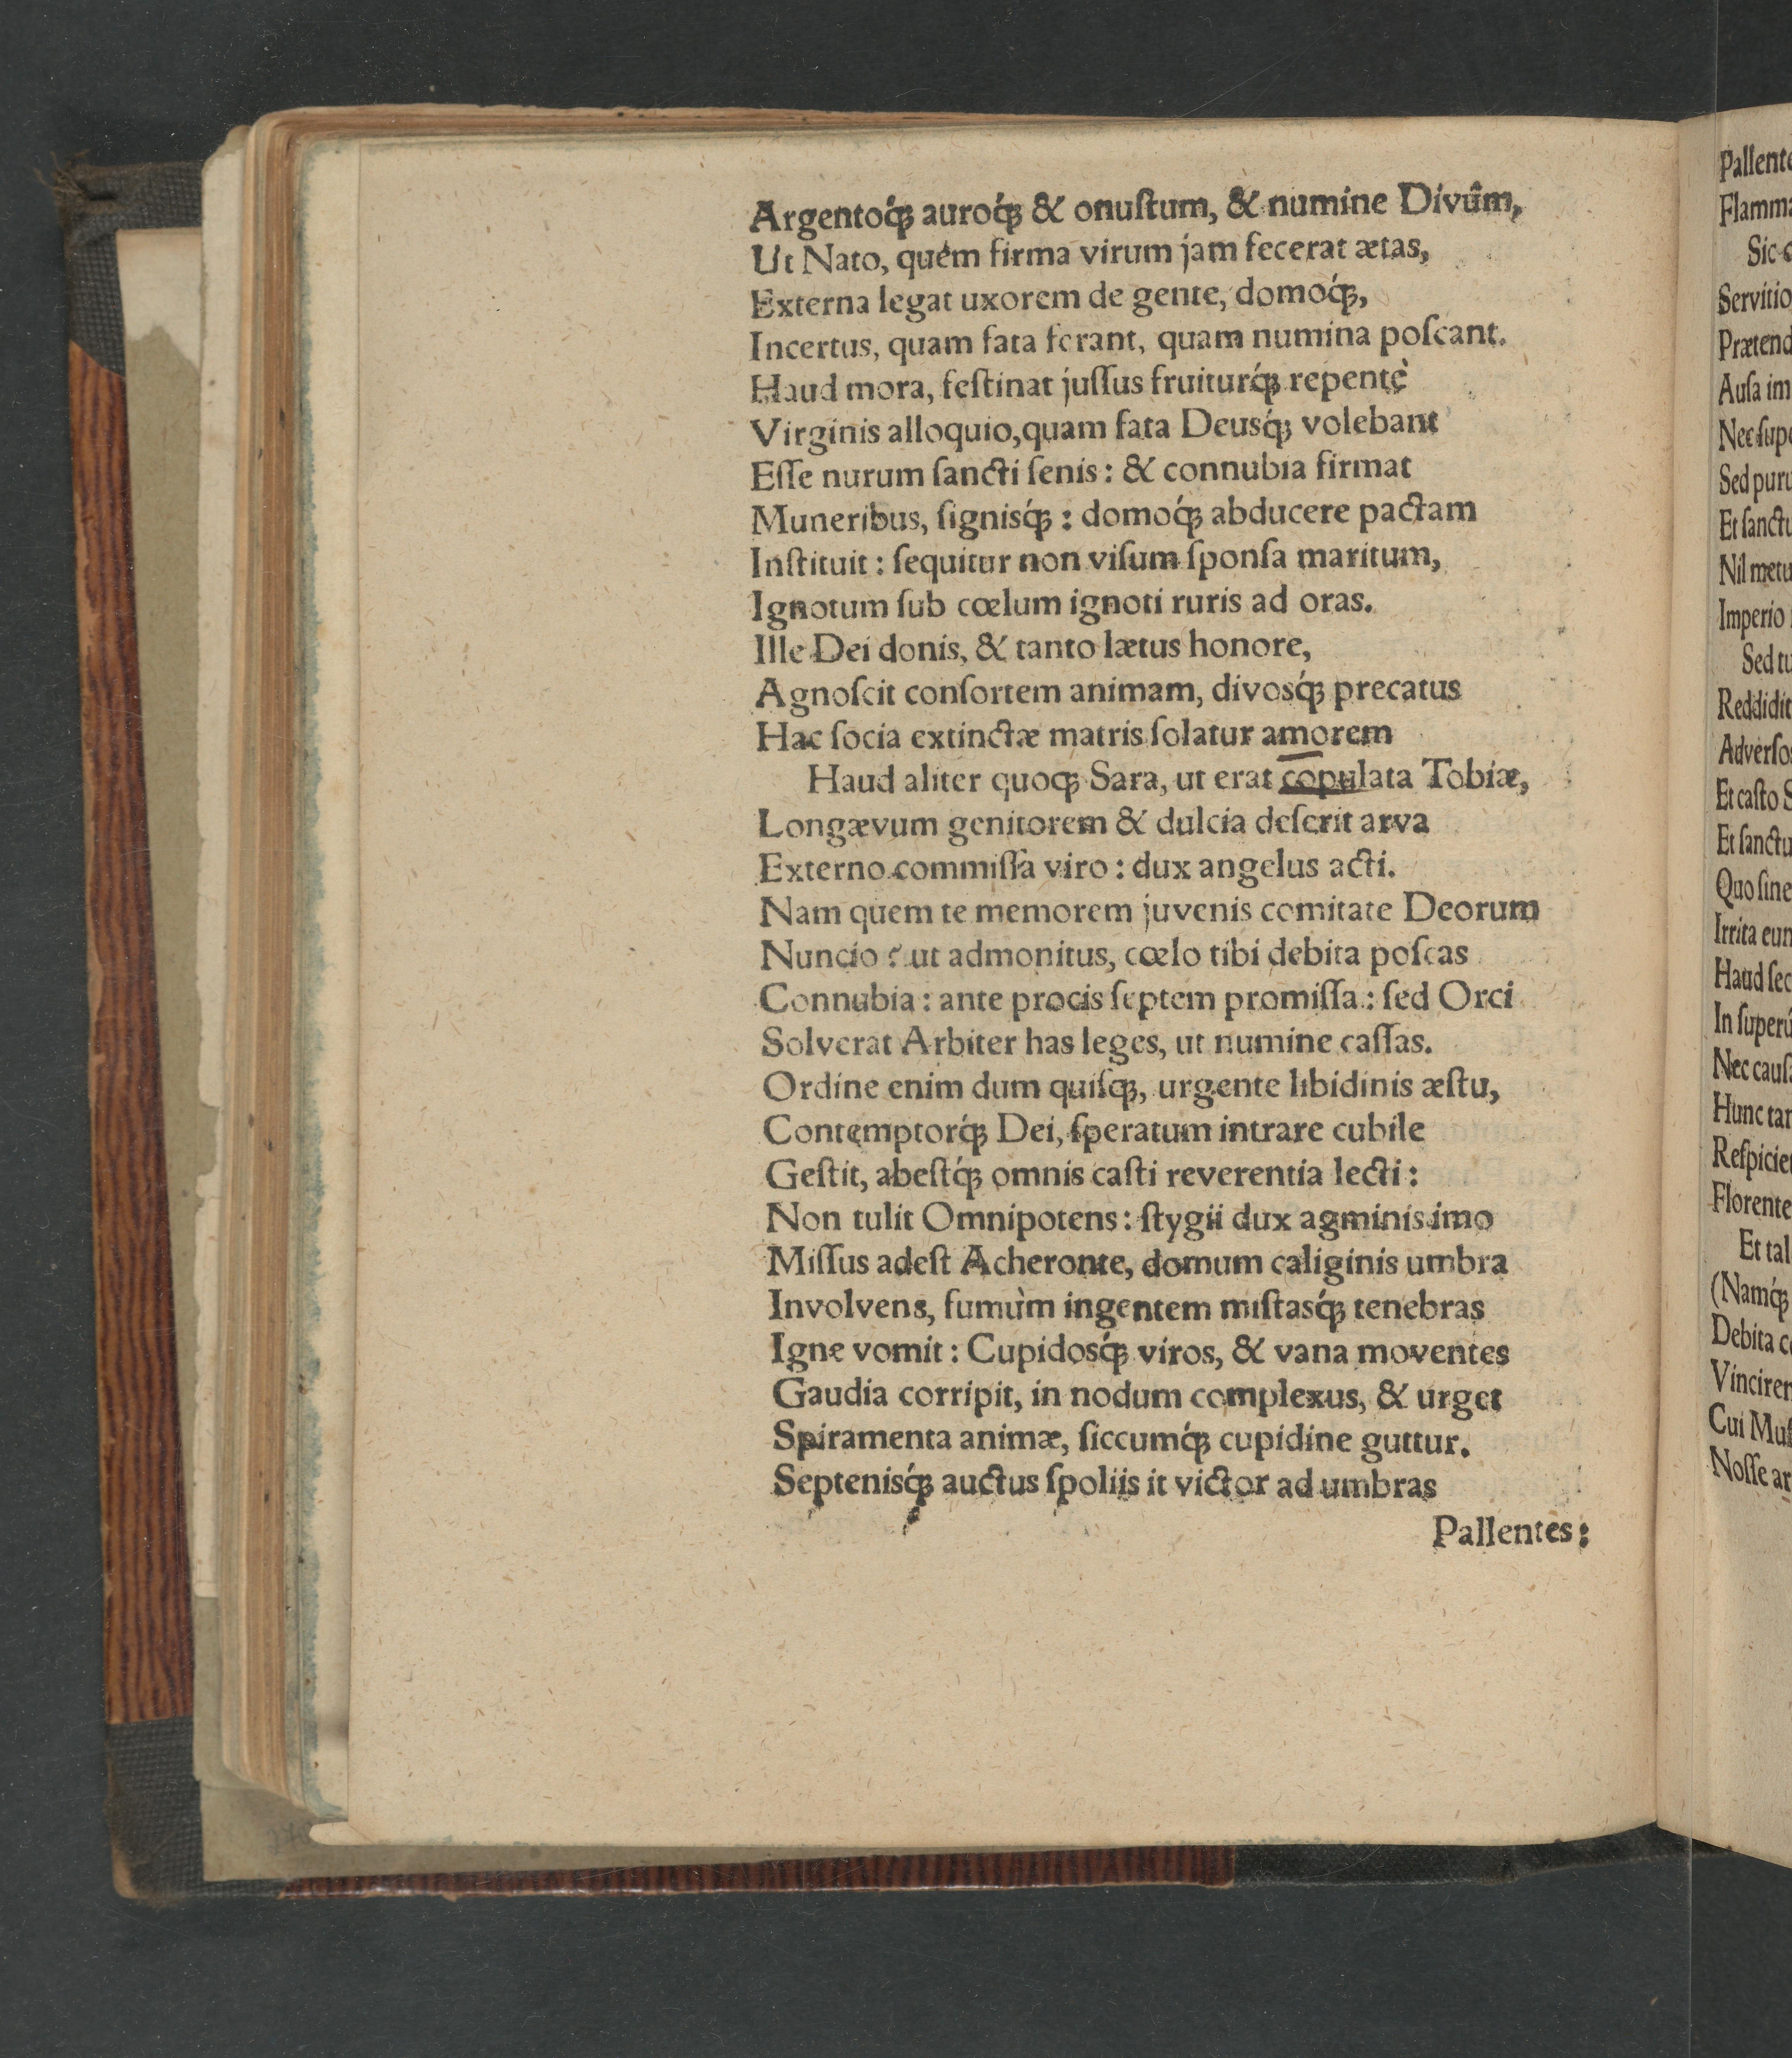 Argentoq́ꝫ auroq́ꝫ & onuſtum, & numine Divûm,
Ut Nato, quém firma virum jam fecerat ætas,
Externa legat uxorem de gente, domoq́ꝫ,
Incertus, quam fata ferant, quam numina poſcant.
Haud mora, feſtinat juſſus fruiturq́ꝫ repentè
Virginis alloquio, quam fata Deusq́ꝫ volebant
Eſſe nurum ſancti ſenis: & connubia firmat
Muneribus, ſignisq́ꝫ: domoq́ꝫ abducere pactam
Inſtituit: ſequitur non viſum ſponſa maritum,
Ignotum ſub cœlum ignoti ruris ad oras.
Ille Dei donis, & tanto lætus honore,
Agnoſcit conſortem animam, divosq́ꝫ precatus
Hac ſocia extinctæ matris ſolatur amorem
Haud aliter quoqꝫ Sara, ut erat copulata Tobiæ,
Longævum genitorem & dulcia deſerit arva
Externo commiſſa viro: dux angelus acti.
Nam quem te memorem juvenis comitate Deorum
Nuncio? ut admonitus, cœlo tibi debita poſcas
Connubia: ante procis ſeptem promiſſa: ſed Orci
Solverat Arbiter has leges, ut numine caſſas.
Ordine enim dum quiſqꝫ, urgente libidinis æſtu,
Contemptorq́ꝫ Dei, ſperatum intrare cubile
Geſtit, abeſtq́ꝫ omnis caſti reverentia lecti:
Non tulit Omnipotens: ſtygii dux agminis imo
Miſſus adeſt Acheronte, domum caliginis umbra
Involvens, fumùm ingentem miſtasq́ꝫ tenebras
Igne vomit: Cupidosq́ꝫ viros, & vana moventes
Gaudia corripit, in nodum complexus, & urget
Spiramenta animæ, ſiccumq́ꝫ cupidine guttur.
Septenisq́ꝫ auctus ſpoliis it victor ad umbras
Pallentes:
Flamm
Sic
Servitio
Prætend
Auſa im
Nec ſup
Sed puru
Et ſanctu
Nil metu
Imperio
Sed tu
Reddidit
Adverſos
Et caſto S
Et ſanctu
Quo ſine
Irrita eun
Haud ſec
In ſuperû
Nec cauſa
Hunc tan
Reſpicien
Florente
Et tal
(Namq́ꝫ
Debita c
Vinciren
Cui Muſ
Noſſe ar